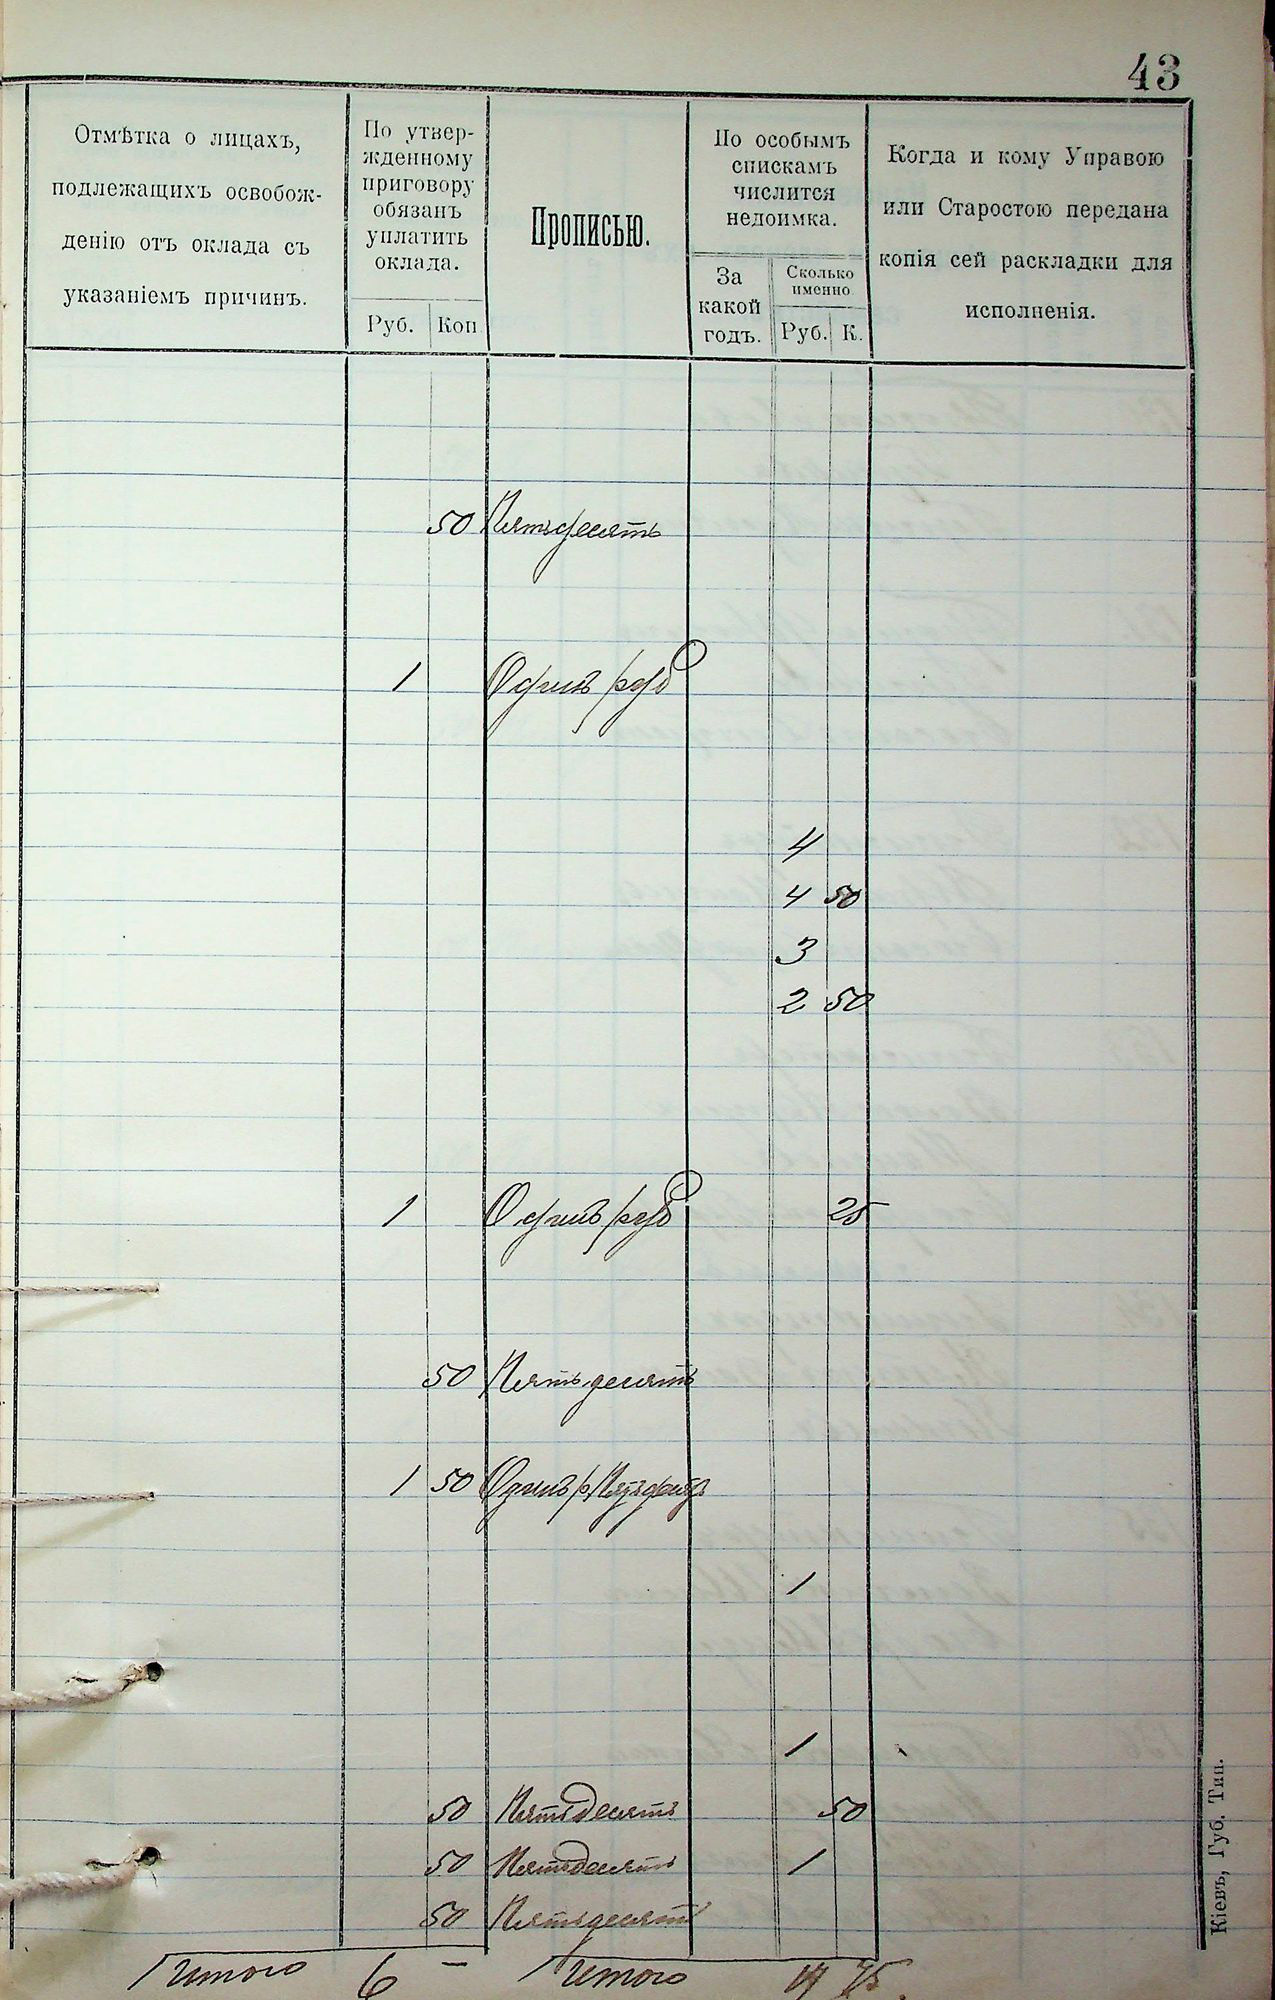 43
Отмѣтка о лицахъ,
подлежащихъ освобож-
денію отъ оклада съ
указаніемъ причинъ.
По утвер-
жденному
приговору
обязанъ
уплатить
оклада.
Руб. Коп
Прописью.
По особымъ
спискамъ
числится
недоимка.
За
какой
годъ.
Сколько
именно
Руб. К.
Когда и кому Управою
или Старостою передана
копія сей раскладки для
исполненія.
50 Пятьдесятъ
1 Одинъ руб
4
4 50
3
2 50
1 Одинъ руб 25
50 Пятьдесятъ
1 50 Одинъ р Пятьдесятъ
1
1
50 Пятьдесятъ 50
50 Пятьдесятъ 1
50 Пятьдесятъ
Итого 6 — Итого 75
Кіевъ, Губ. Тип.